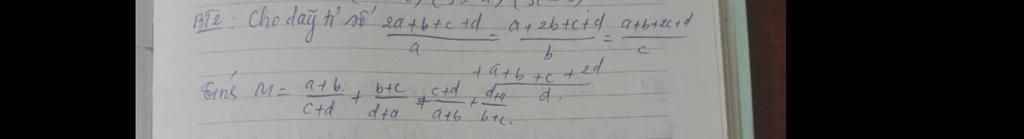 BT2: Cho dãy tỉ số (2a+b+c+d)/a = (a+2b+c+d)/b = (a+b+2c+d)/c
+ (a+b+c+2d)/d.
Tính M = (a+b)/(c+d) + (b+c)/(d+a) + (c+d)/(a+b) + (d+a)/(b+c).